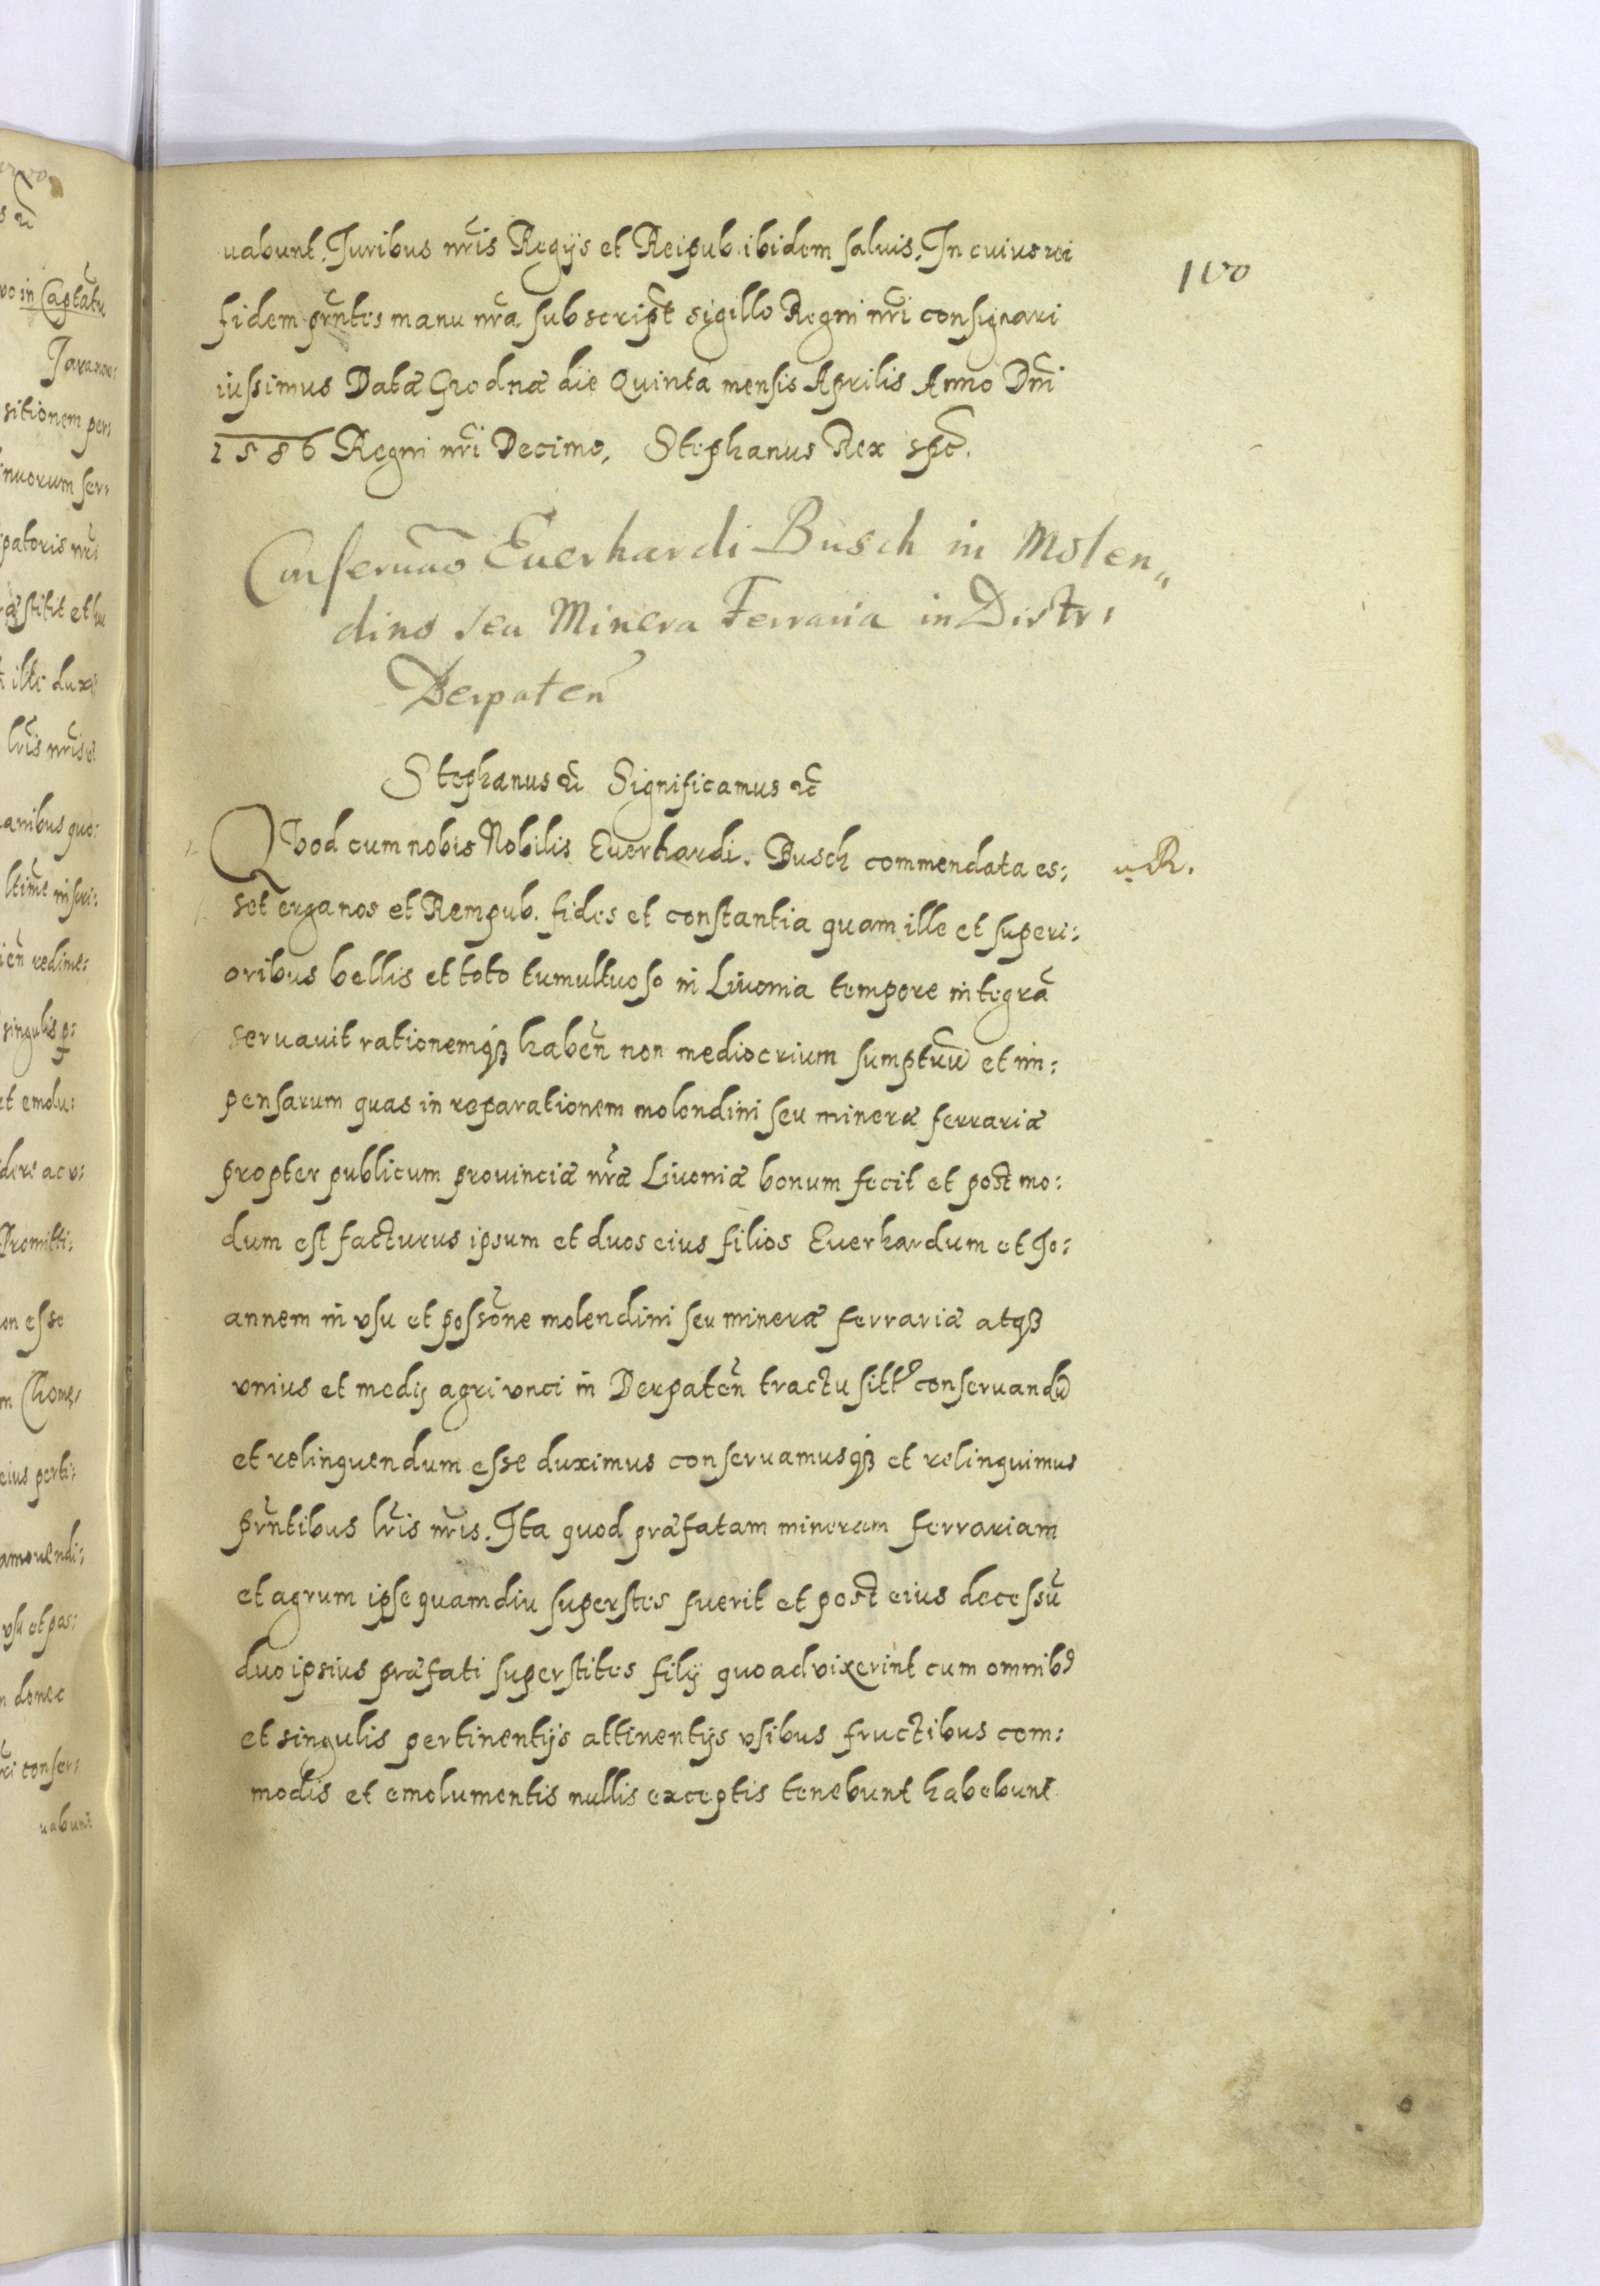 uabunt. Juribus nr̃is Regijs et Reipub. ibidem saluis. In cuius rei
100
fidem pñtes manu nr̃a subscript̃ sigillo Regni nr̃i consignari
iussimus Datæ Grodnæ die Quinta mensis Aprilis Anno Dñi
1586 Regni nr̃i Decimo, Stephanus Rex spt̃.
Conseruão Euerhardi Busch in Molen„
dino seu Minera Ferraria in Distr:
Derpaten̄
Stephanus etc̃ Significamus etc̃
Quod cum nobis Nobilis Euerhardi. Busch commendata es:
u. R.
set erga nos et Rempub. fides et constantia quam ille et superi:
oribus bellis et toto tumultuoso in Liuonia tempore integrã
seruauit rationemqꝫ habeñ non mediocrium sumptuũ et im:
pensarum quas in reparationem molendini seu mineræ ferrariæ
propter publicum prouinciæ nr̃æ Liuoniæ bonum fecit et post mo:
dum est facturus ipsum et duos eius filios Euerhardum et Jo:
annem in vsu et possõne molendini seu mineræ ferrariæ atqꝫ
vnius et medij agri vnci in Derpateñ tractu sittꝰ conseruandũ
et relinquendum esse duximus conseruamusqꝫ et relinquimus
pñtibus lr̃is nr̃is. Ita quod præfatam mineram ferrariam
et agrum ipse quamdiu superstes fuerit et post eius decessũ
duo ipsius præfati superstites filij quoad vixerint cum omnibꝰ
et singulis pertinentijs attinentijs vsibus fructibus com:
modis et emolumentis nullis exceptis tenebunt habebunt